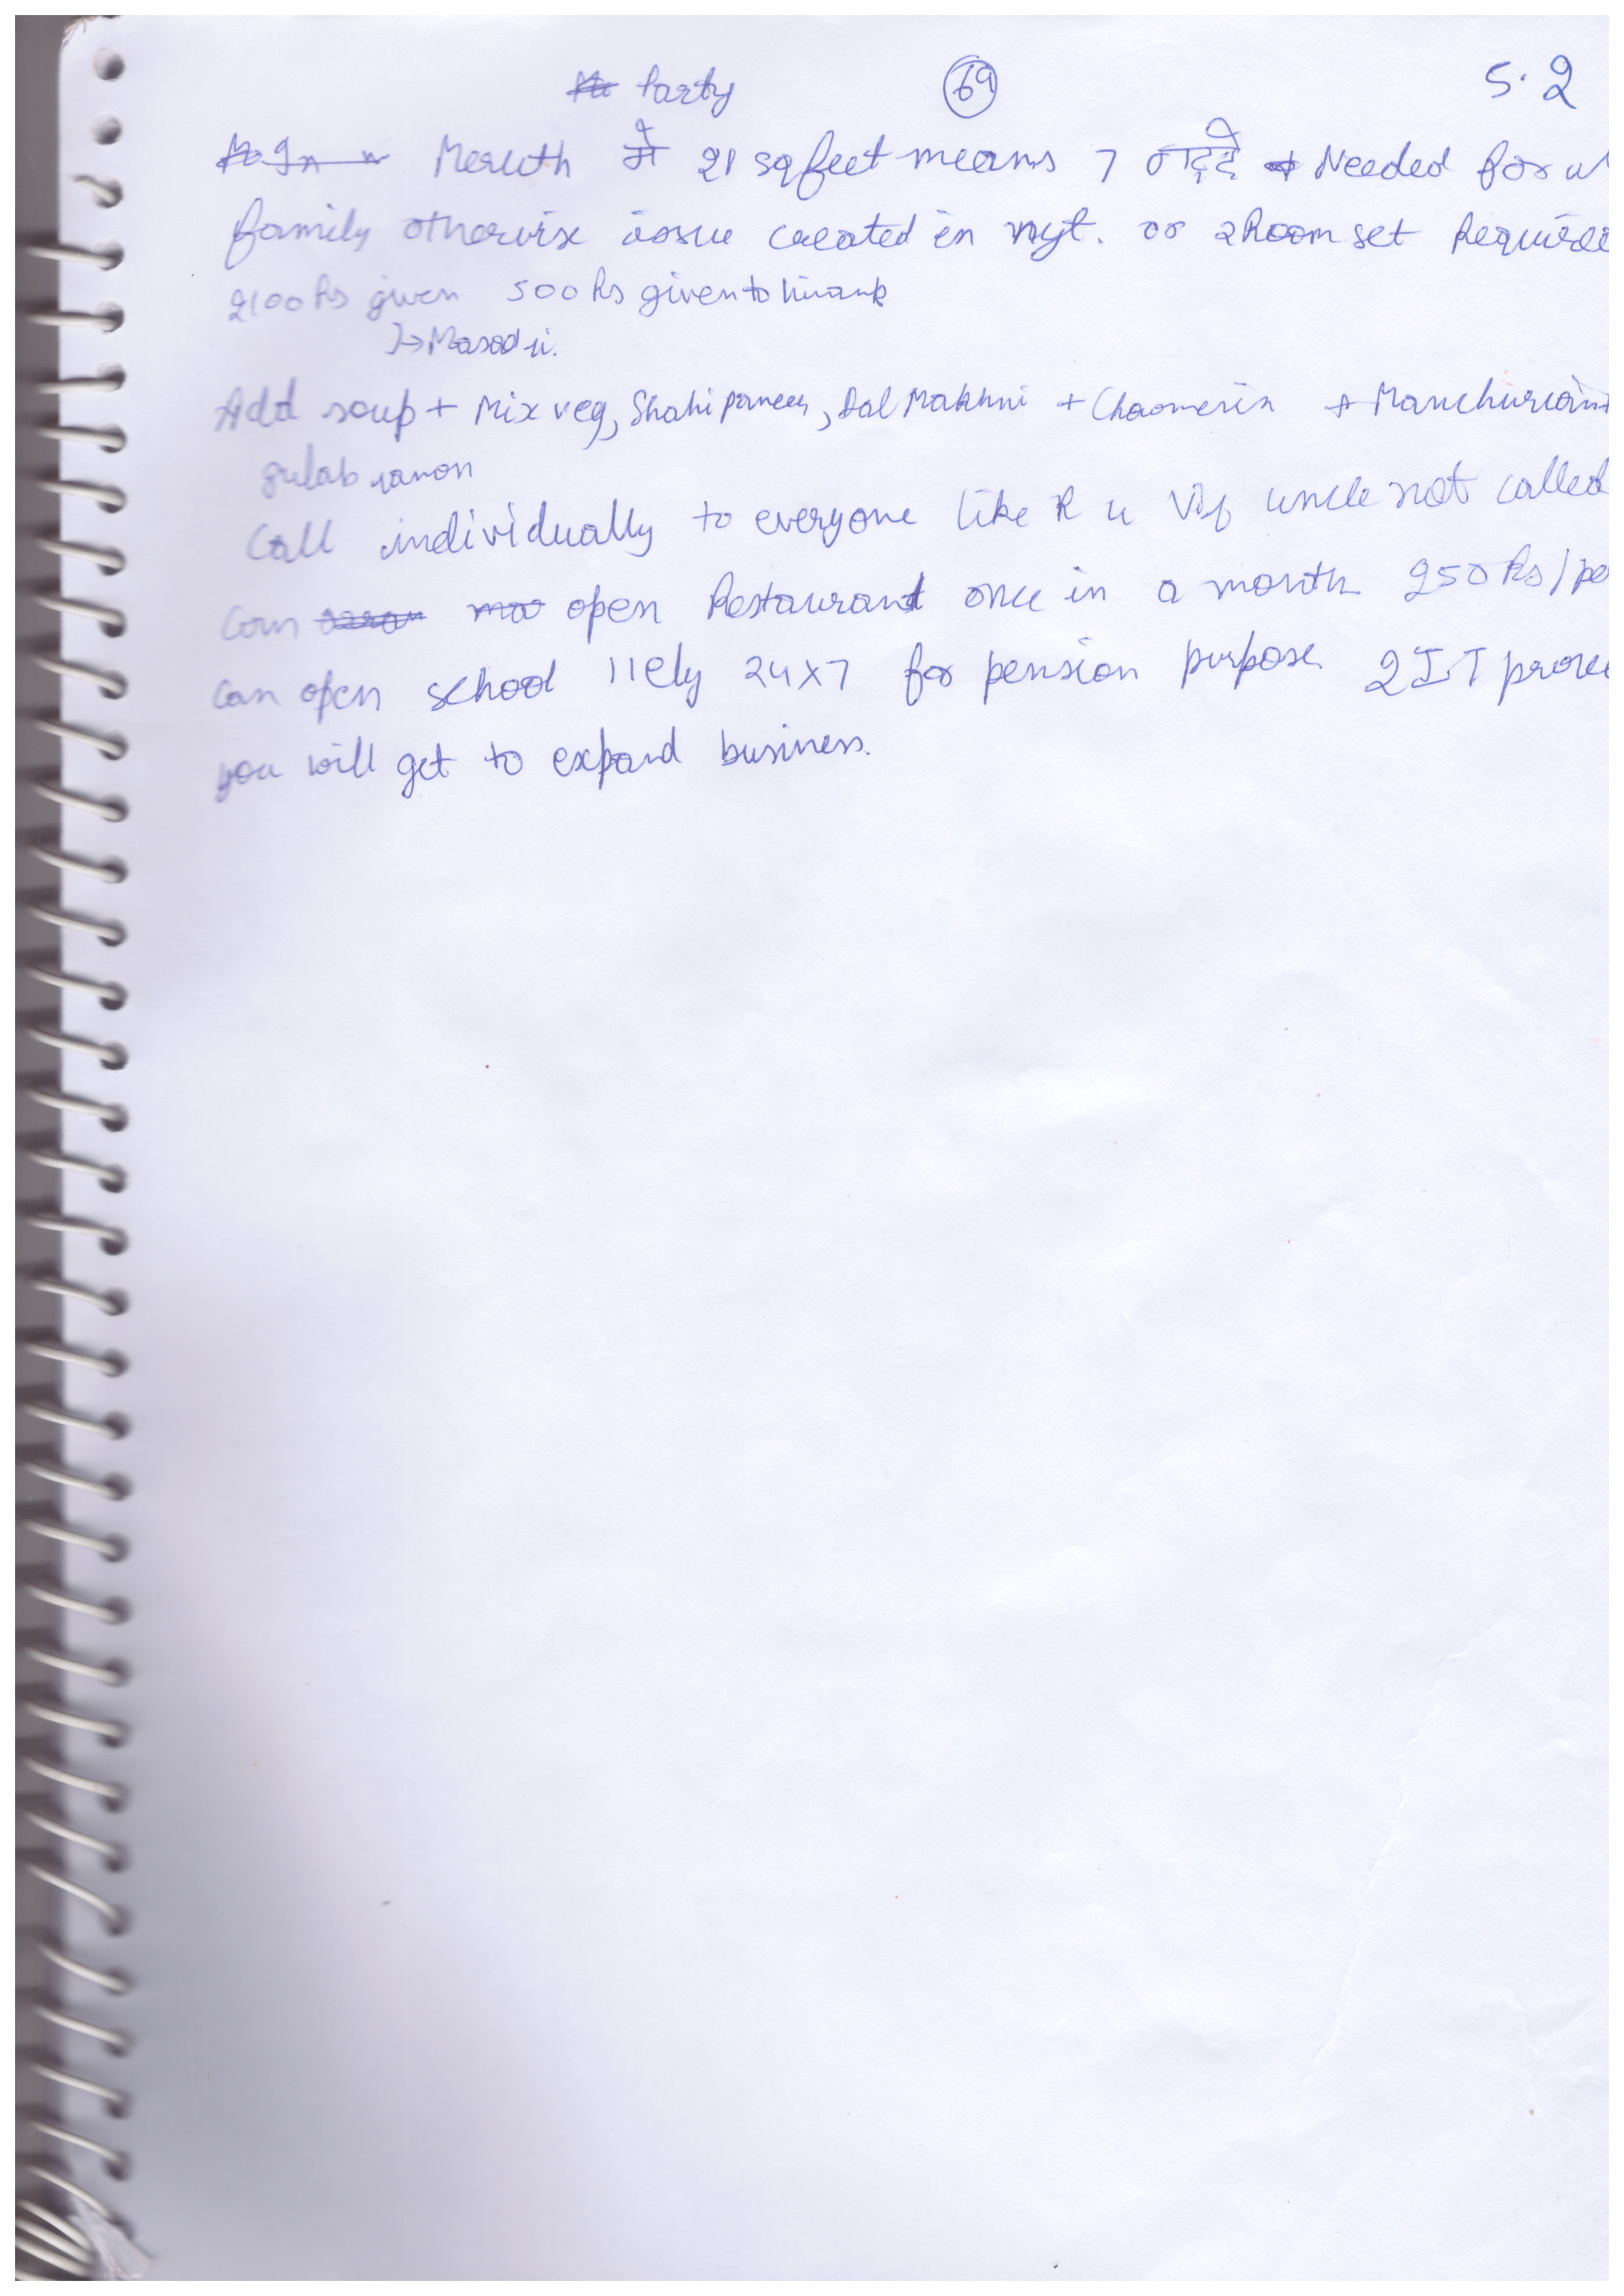 Party 69 5.2
Meruth मे 21 sq feet means 7 गददे Needed for
family otherwise issue created in nyt. or 2 Room set Require
2100 Rs given 500 Rs given to
Add soup + Mix veg, Shahi paneer, Dal Makhni + Chaomein + Manchurian
gulab
Call individually to everyone like R u uncle not called
open Restaurant once in a month 250 Rs/pe
can open school 11ely 24x7 for pension purpose 2 IT
you will get to expand business.